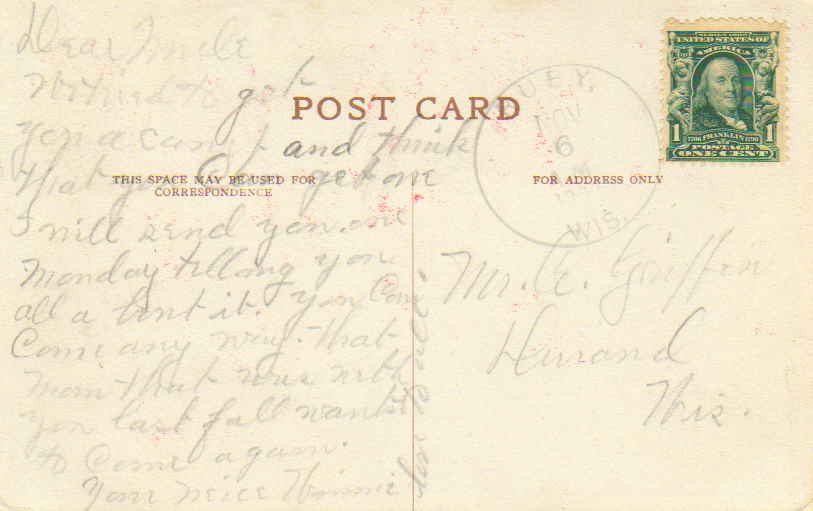 Dear Uncle
I tried to get
you a camp and think
that you can get one
I will send you one
Monday telling you
all a bout it. You Can
Come any way. that
man that was with
you last fall wants
to Come again.
Your neice Winnie
POST CARD
THIS SPACE MAY BE USED FOR
CORRESPONDENCE
FOR ADDRESS ONLY
NOV
6
WIS.
UNITED STATES OF
AMERICA
1 FRANKLIN 1
POSTAGE
ONE CENT
Mr. E. Griffin
Durand
Wis.